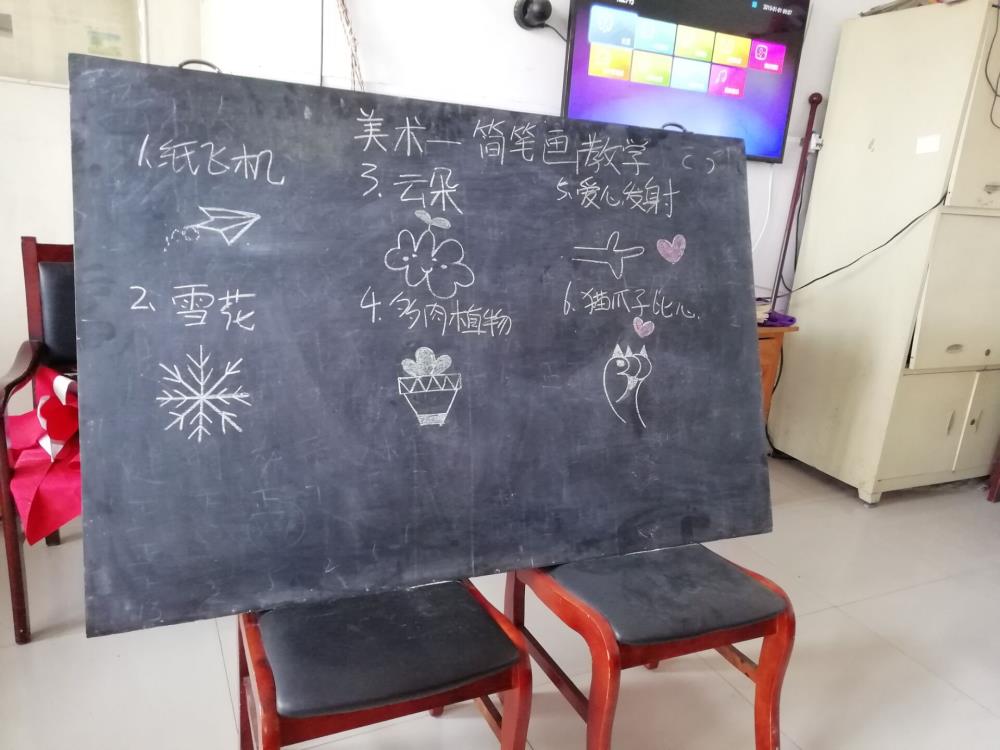 美术—简笔画教学（二）
1.纸飞机
2.雪花
3.云朵
4.多肉植物
5.爱心发射
6.猫爪子比心.